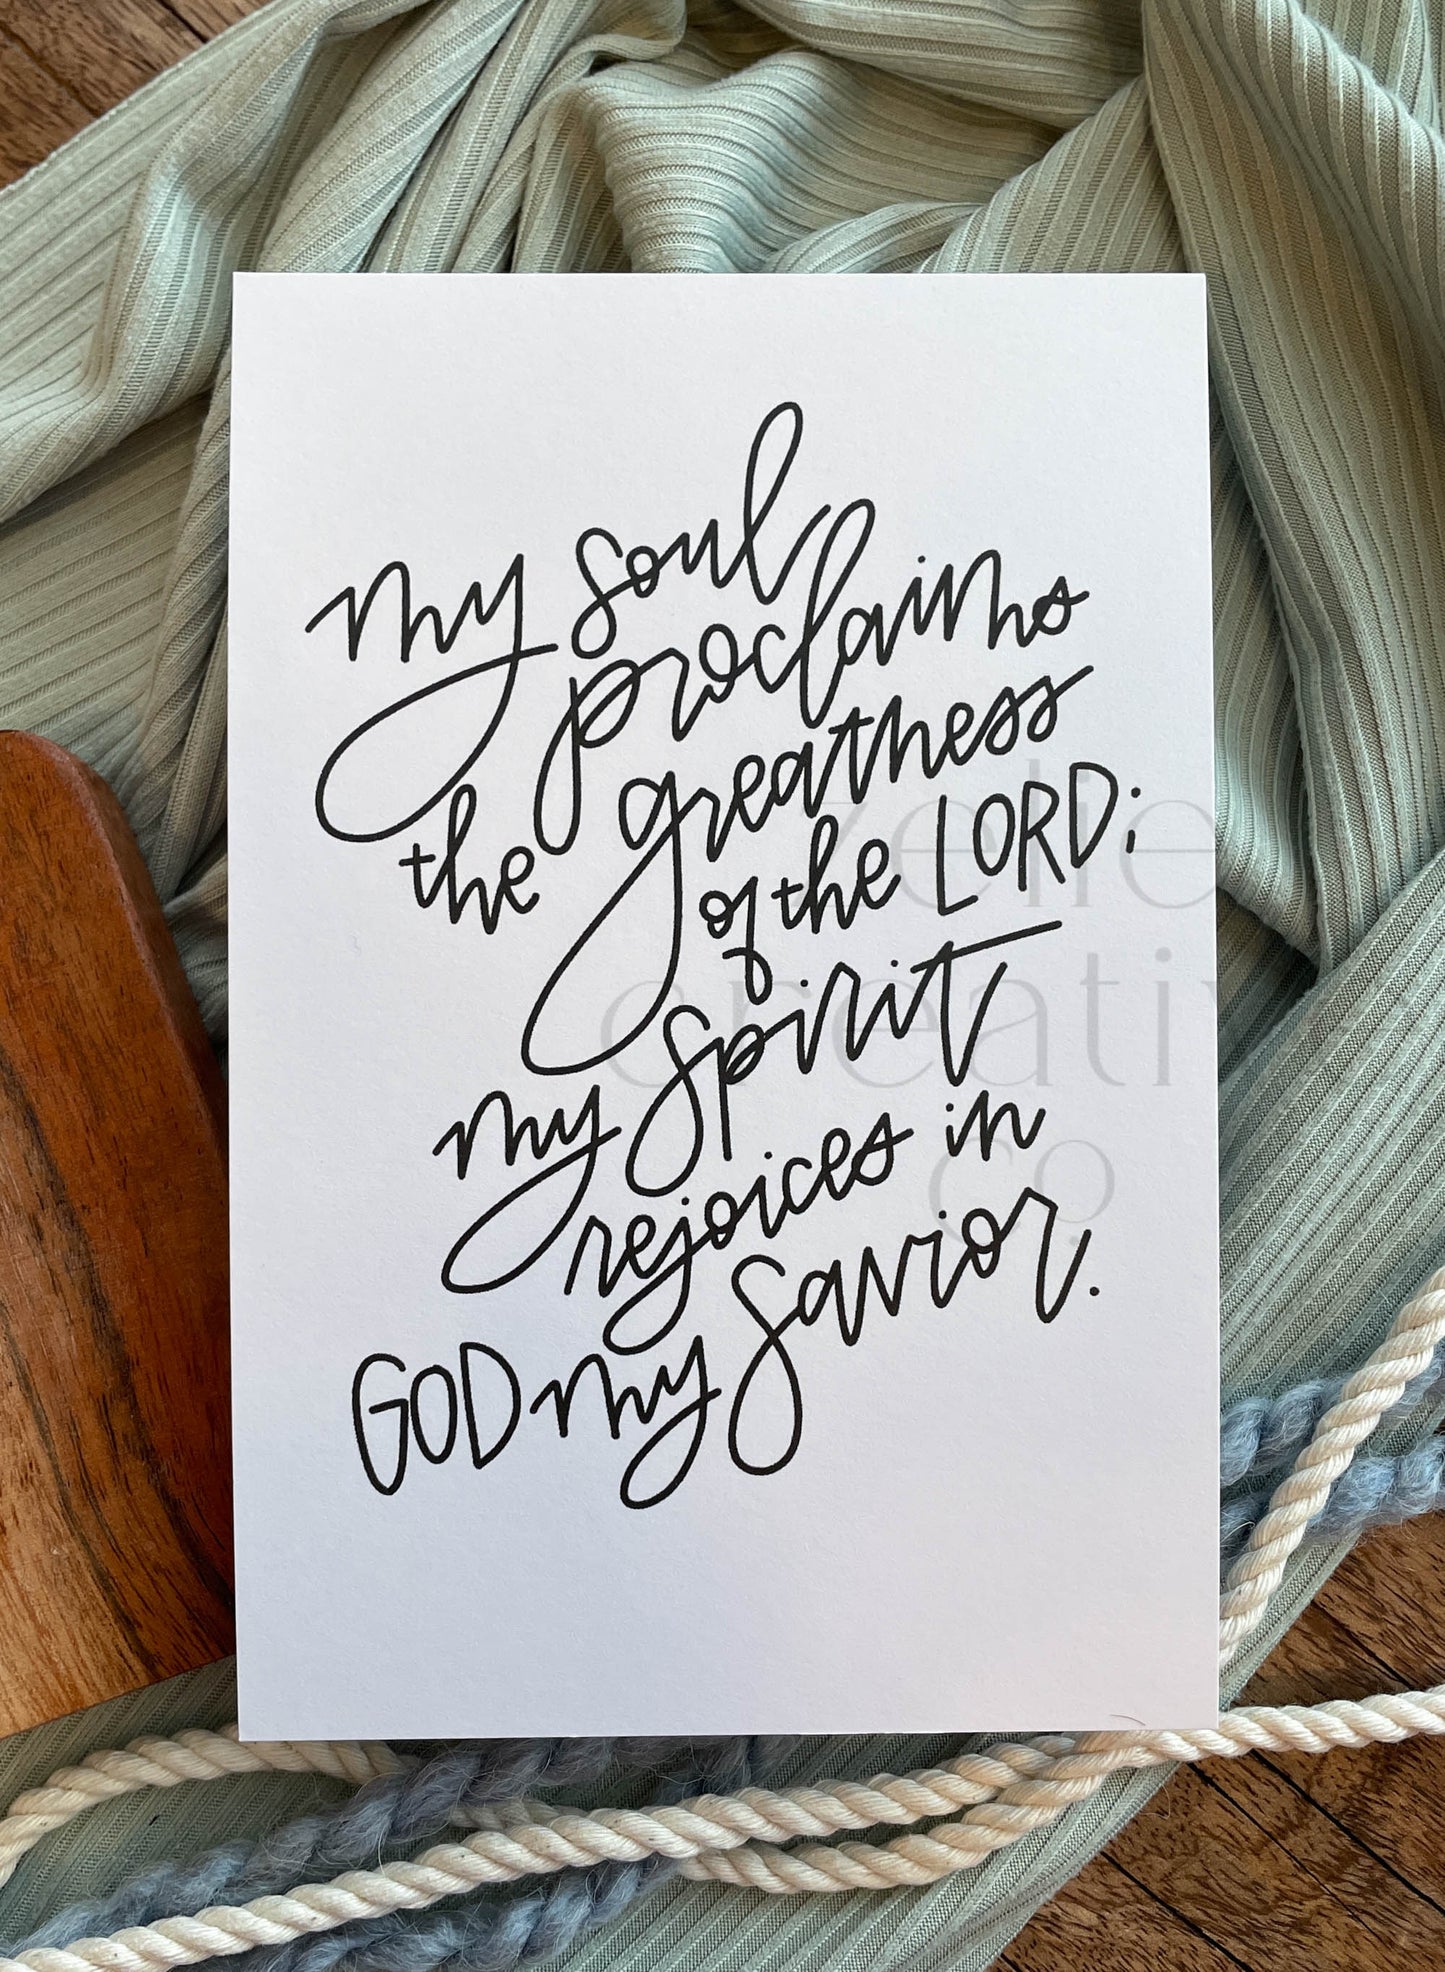 my soul
proclaims
the greatness
of the LORD;
my spirit
rejoices in
GOD my savior.
zelie
creativ
co.